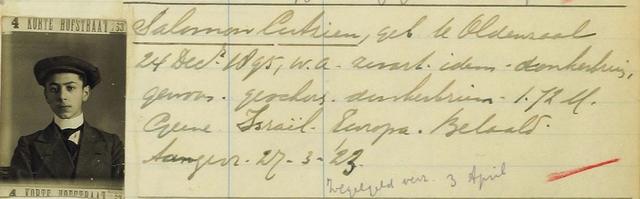 4 KORTE HOFSTRAAT 53
Salomon Cutrien, geb te Oldenzaal
24 Dec. 1895, w.a. zwart. idem - donkerbruin,
gewoon. geschor. donkerbruin - 1.72 M.
Geene Israël. Europa. Betaald.
Aangevr. 27-3-'23
Zegelgeld verz. 3 April
4 KORTE HOFSTRAAT 53